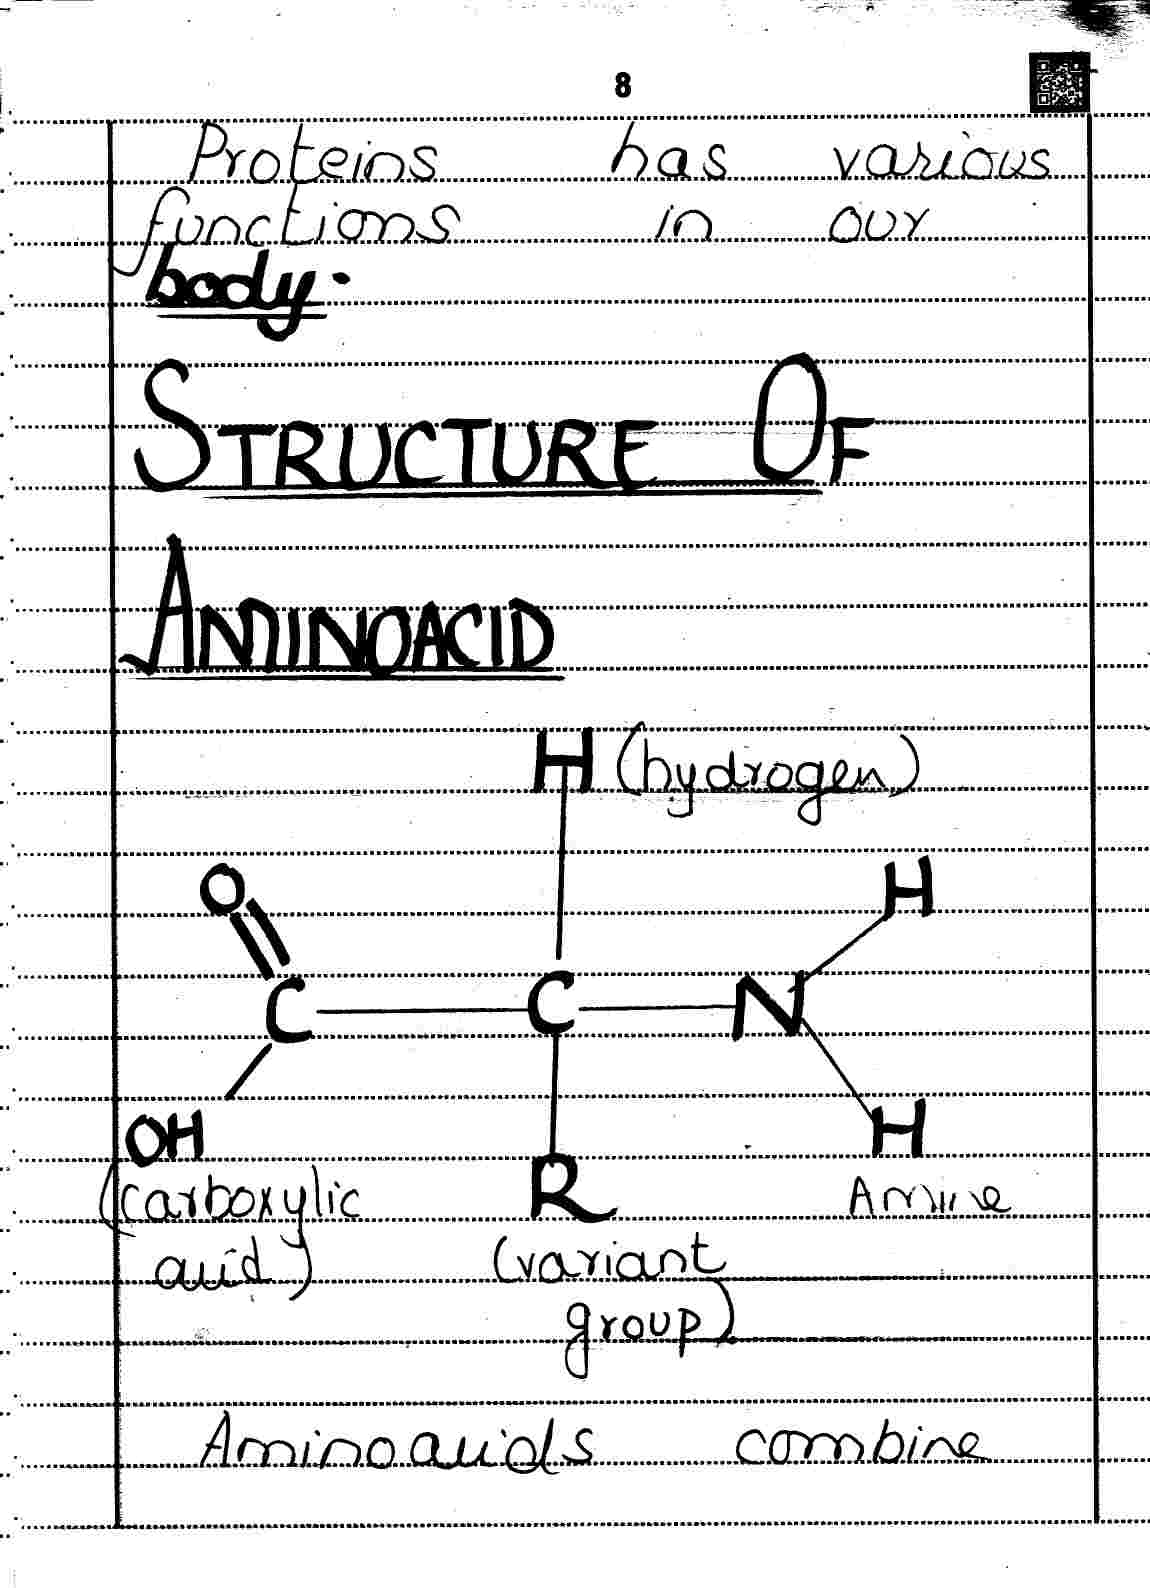 8
Proteins has various
functions in our
body.
STRUCTURE OF
AMINOACID
H (hydrogen)
O H
C C N
OH R H
(carboxylic Amine
acid) (variant
group)
Aminoacids combine